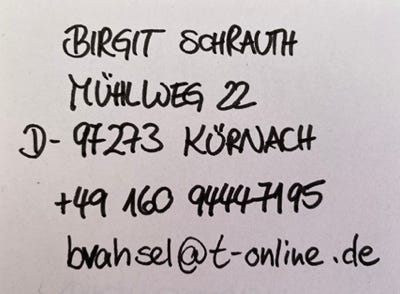 BIRGIT SCHRAUTH
MÜHLWEG 22
D- 97273 KÜRNACH
+49 160 94447195
bvahsel@t-online.de